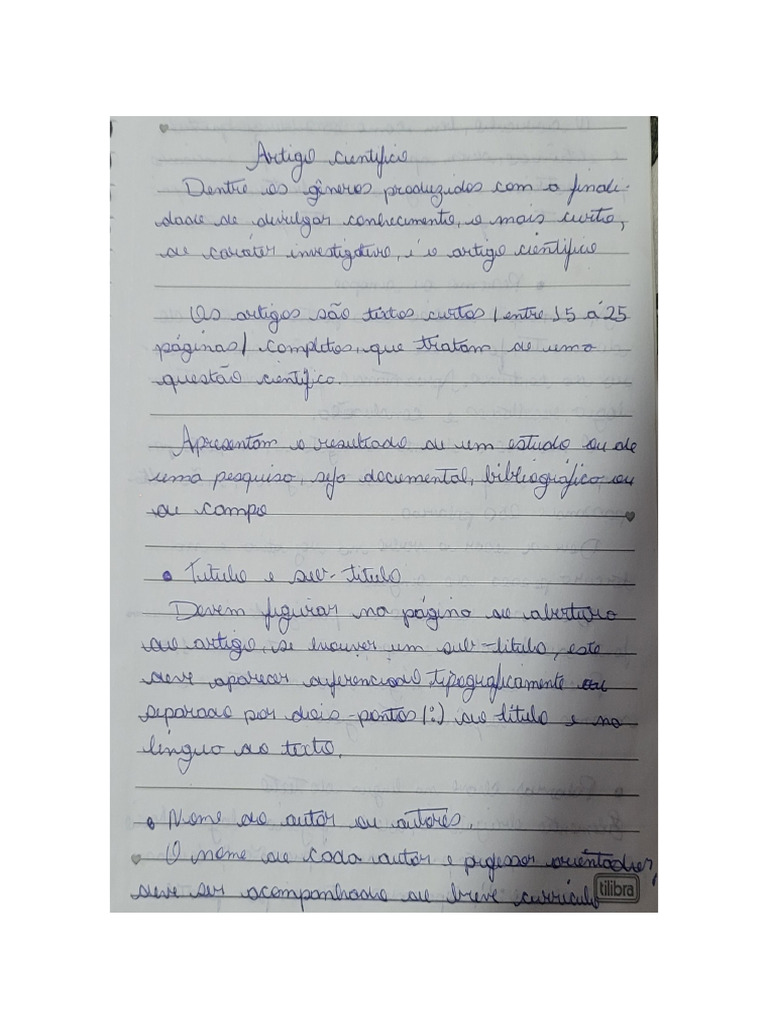 Artigo científico
Dentre os gêneros produzidos com a finali-
dade de divulgar conhecimento, o mais curto,
de caráter investigativo, é o artigo científico
Os artigos são textos curtos (entre 15 á 25
páginas) completos, que tratam de uma
questão científica.
Apresentam o resultado de um estudo ou de
uma pesquisa, seja documental, bibliográfica ou
de campo
• Título e sub-titulo
Devem figurar na página de abertura
do artigo, se houver um sub-titulo, este
deve aparecer diferenciado tipograficamente ou
separado por dois-pontos (:) do título e na
língua do texto.
• Nome do autor ou autores.
O nome de cada autor e professor orientador,
deve ser acompanhado de breve currículo
tilibra